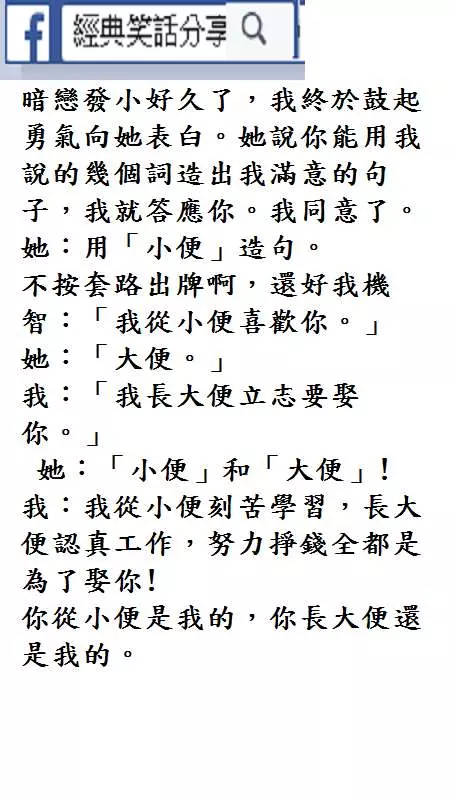 f 經典笑話分享
暗戀發小好久了，我終於鼓起
勇氣向她表白。她說你能用我
說的幾個詞造出我滿意的句
子，我就答應你。我同意了。
她：用「小便」造句。
不按套路出牌啊，還好我機
智：「我從小便喜歡你。」
她：「大便。」
我：「我長大便立志要娶
你。」
她：「小便」和「大便」!
我：我從小便刻苦學習，長大
便認真工作，努力掙錢全都是
為了娶你!
你從小便是我的，你長大便還
是我的。